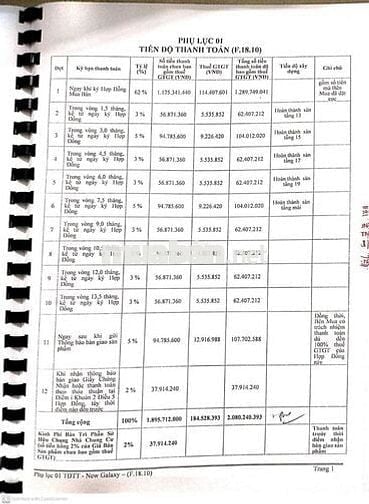 PHỤ LỤC 01
TIẾN ĐỘ THANH TOÁN (F.18.10)
Đợt | Kỳ hạn thanh toán | Tỷ lệ (%) | Số tiền thanh toán chưa bao gồm thuế GTGT (VNĐ) | Thuế GTGT (VNĐ) | Tổng số tiền thanh toán đã bao gồm thuế GTGT (VNĐ) | Tiến độ xây dựng | Ghi chú
1 | Ngay khi ký Hợp Đồng Mua Bán | 62 % | 1.175.341.440 | 114.407.601 | 1.289.749.041 | | gồm số tiền mà Bên Mua đã đặt cọc
2 | Trong vòng 1,5 tháng, kể từ ngày ký Hợp Đồng | 3 % | 56.871.360 | 5.535.852 | 62.407.212 | Hoàn thành sàn tầng 13
3 | Trong vòng 3,0 tháng, kể từ ngày ký Hợp Đồng | 5 % | 94.785.600 | 9.226.420 | 104.012.020 | Hoàn thành sàn tầng 15
4 | Trong vòng 4,5 tháng, kể từ ngày ký Hợp Đồng | 3 % | 56.871.360 | 5.535.852 | 62.407.212 | Hoàn thành sàn tầng 17
5 | Trong vòng 6,0 tháng, kể từ ngày ký Hợp Đồng | 3 % | 56.871.360 | 5.535.852 | 62.407.212 | Hoàn thành sàn tầng 19
6 | Trong vòng 7,5 tháng, kể từ ngày ký Hợp Đồng | 5 % | 94.785.600 | 9.226.420 | 104.012.020 | Hoàn thành sàn tầng mái
7 | Trong vòng 9,0 tháng, kể từ ngày ký Hợp Đồng | 3 % | 56.871.360 | 5.535.852 | 62.407.212
8 | Trong vòng kể từ ngày ký Hợp Đồng | 3 % | 56.871.360 | 5.535.852 | 62.407.212
9 | Trong vòng 12,0 tháng, kể từ ngày ký Hợp Đồng | 3 % | 56.871.360 | 5.535.852 | 62.407.212
10 | Trong vòng 13,5 tháng, kể từ ngày ký Hợp Đồng | 3 % | 56.871.360 | 5.535.852 | 62.407.212
11 | Ngay sau khi gửi Thông báo bàn giao sản phẩm | 5 % | 94.785.600 | 12.916.988 | 107.702.588 | | Đồng thời, Bên Mua có trách nhiệm thanh toán đủ đến 100% thuế GTGT của Hợp Đồng này
12 | Khi nhận thông báo bàn giao Giấy Chứng Nhận hoặc thanh toán theo thỏa thuận tại Điểm i Khoản 2 Điều 5 Hợp Đồng, tùy thời điểm nào đến trước | 2% | 37.914.240 | | 37.914.240
Tổng cộng | 100% | 1.895.712.000 | 184.528.393 | 2.080.240.393
Kinh Phí Bảo Trì Phần Sở Hữu Chung Nhà Chung Cư (số tiền bằng 2% của Giá Bán Sản phẩm chưa bao gồm thuế GTGT) | 2% | 37.914.240 | | | | Thanh toán trước thời điểm nhận bàn giao sản phẩm
Phụ lục 01 TĐTT - New Galaxy – (F.18.10)
Trang 1